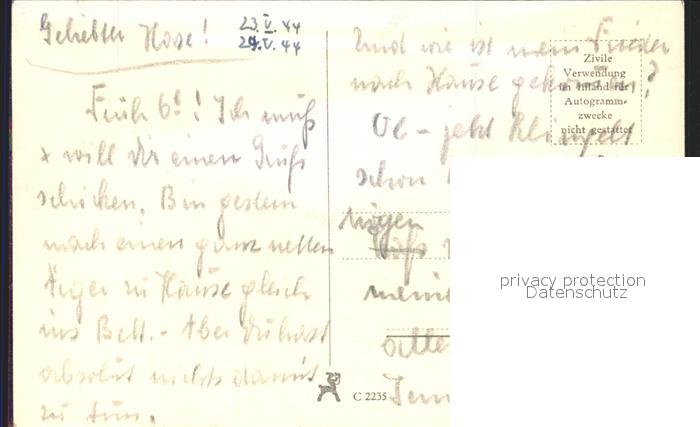 Geliebter Hase!
23.V.44
24.V.44
Früh 6h! Ich muß
+ will dir einen Gruß
schicken. Bin gestern
nach einem ganz netten
Ärger zu Hause gleich
ins Bett. - Aber du hast
absolut nichts damit
zu tun.
Und wie ist mein Frieder
nach Hause gekommen?
- jetzt klingelt
schon
mögen
meine
alle
Zivile
Verwendung
im Inland für
Autogramm-
zwecke
nicht gestattet
C 2235
privacy protection
Datenschutz